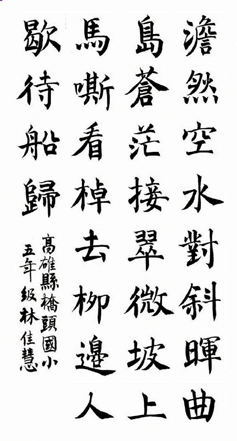 澹然空水對斜暉曲
島蒼茫接翠微坡上
馬嘶看棹去柳邊人
歇待船歸
高雄縣橋頭國小
五年級林佳慧